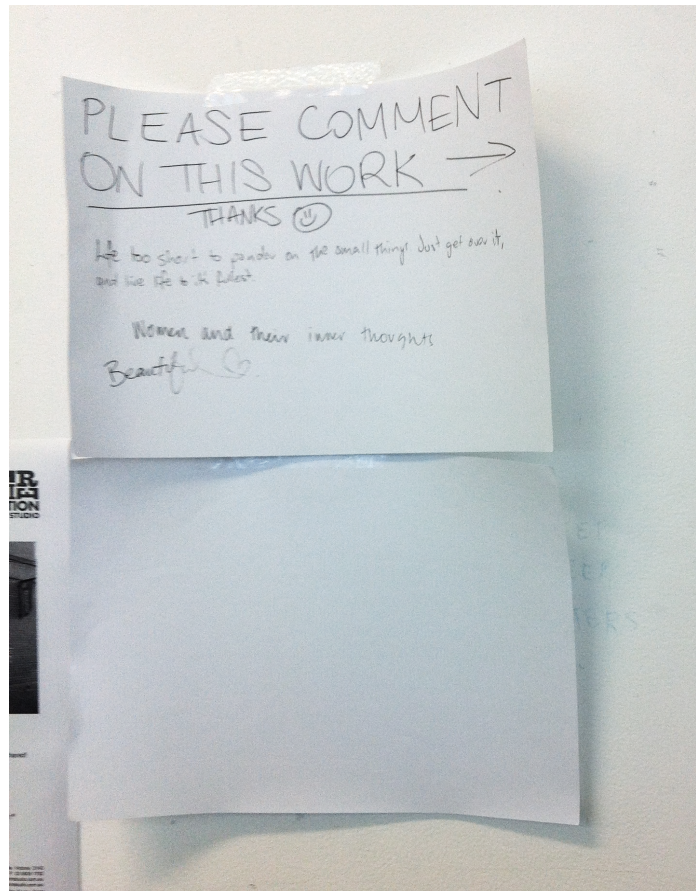 PLEASE COMMENT
ON THIS WORK →
THANKS ☺
Life too short to pander on the small things Just get over it,
and live life to it's fullest.
Women and their inner thoughts
Beautiful ♡
R
TION
STUDIO